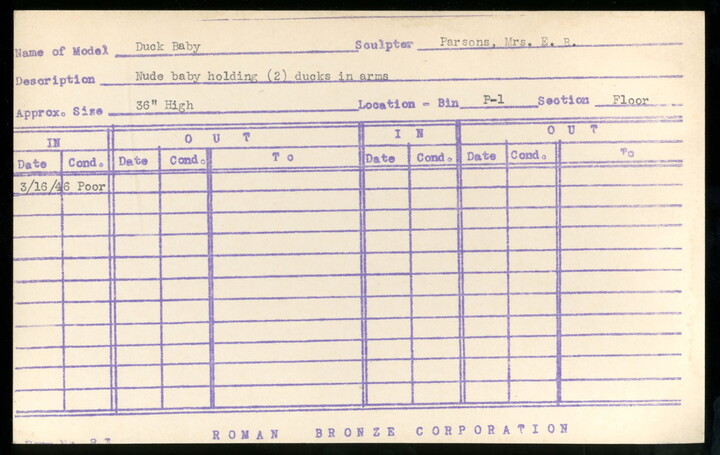 Name of Model Duck Baby Sculptor Parsons, Mrs. E. B.
Description Nude baby holding (2) ducks in arms
Approx. Size 36" High Location - Bin P-1 Section Floor
IN OUT IN OUT
Date Cond. Date Cond. To Date Cond. Date Cond. To
3/16/46 Poor
ROMAN BRONZE CORPORATION